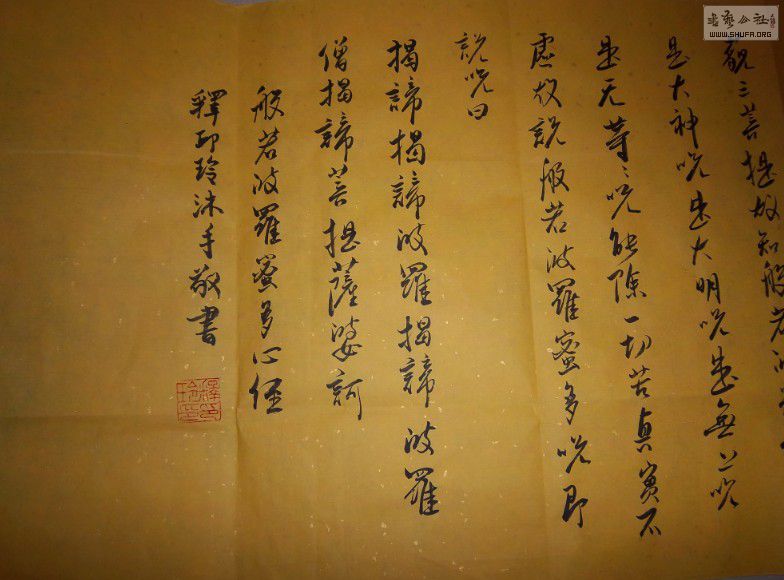 書藝公社
WWW.SHUFA.ORG
藐三菩提故知般若波
是大神咒是大明咒是無上咒
是无等〻咒能除一切苦真實不
虛故說般若波羅蜜多咒即
說咒曰
揭諦揭諦波羅揭諦波羅
僧揭諦菩提薩婆訶
般若波羅蜜多心経
釋印玲沐手敬書